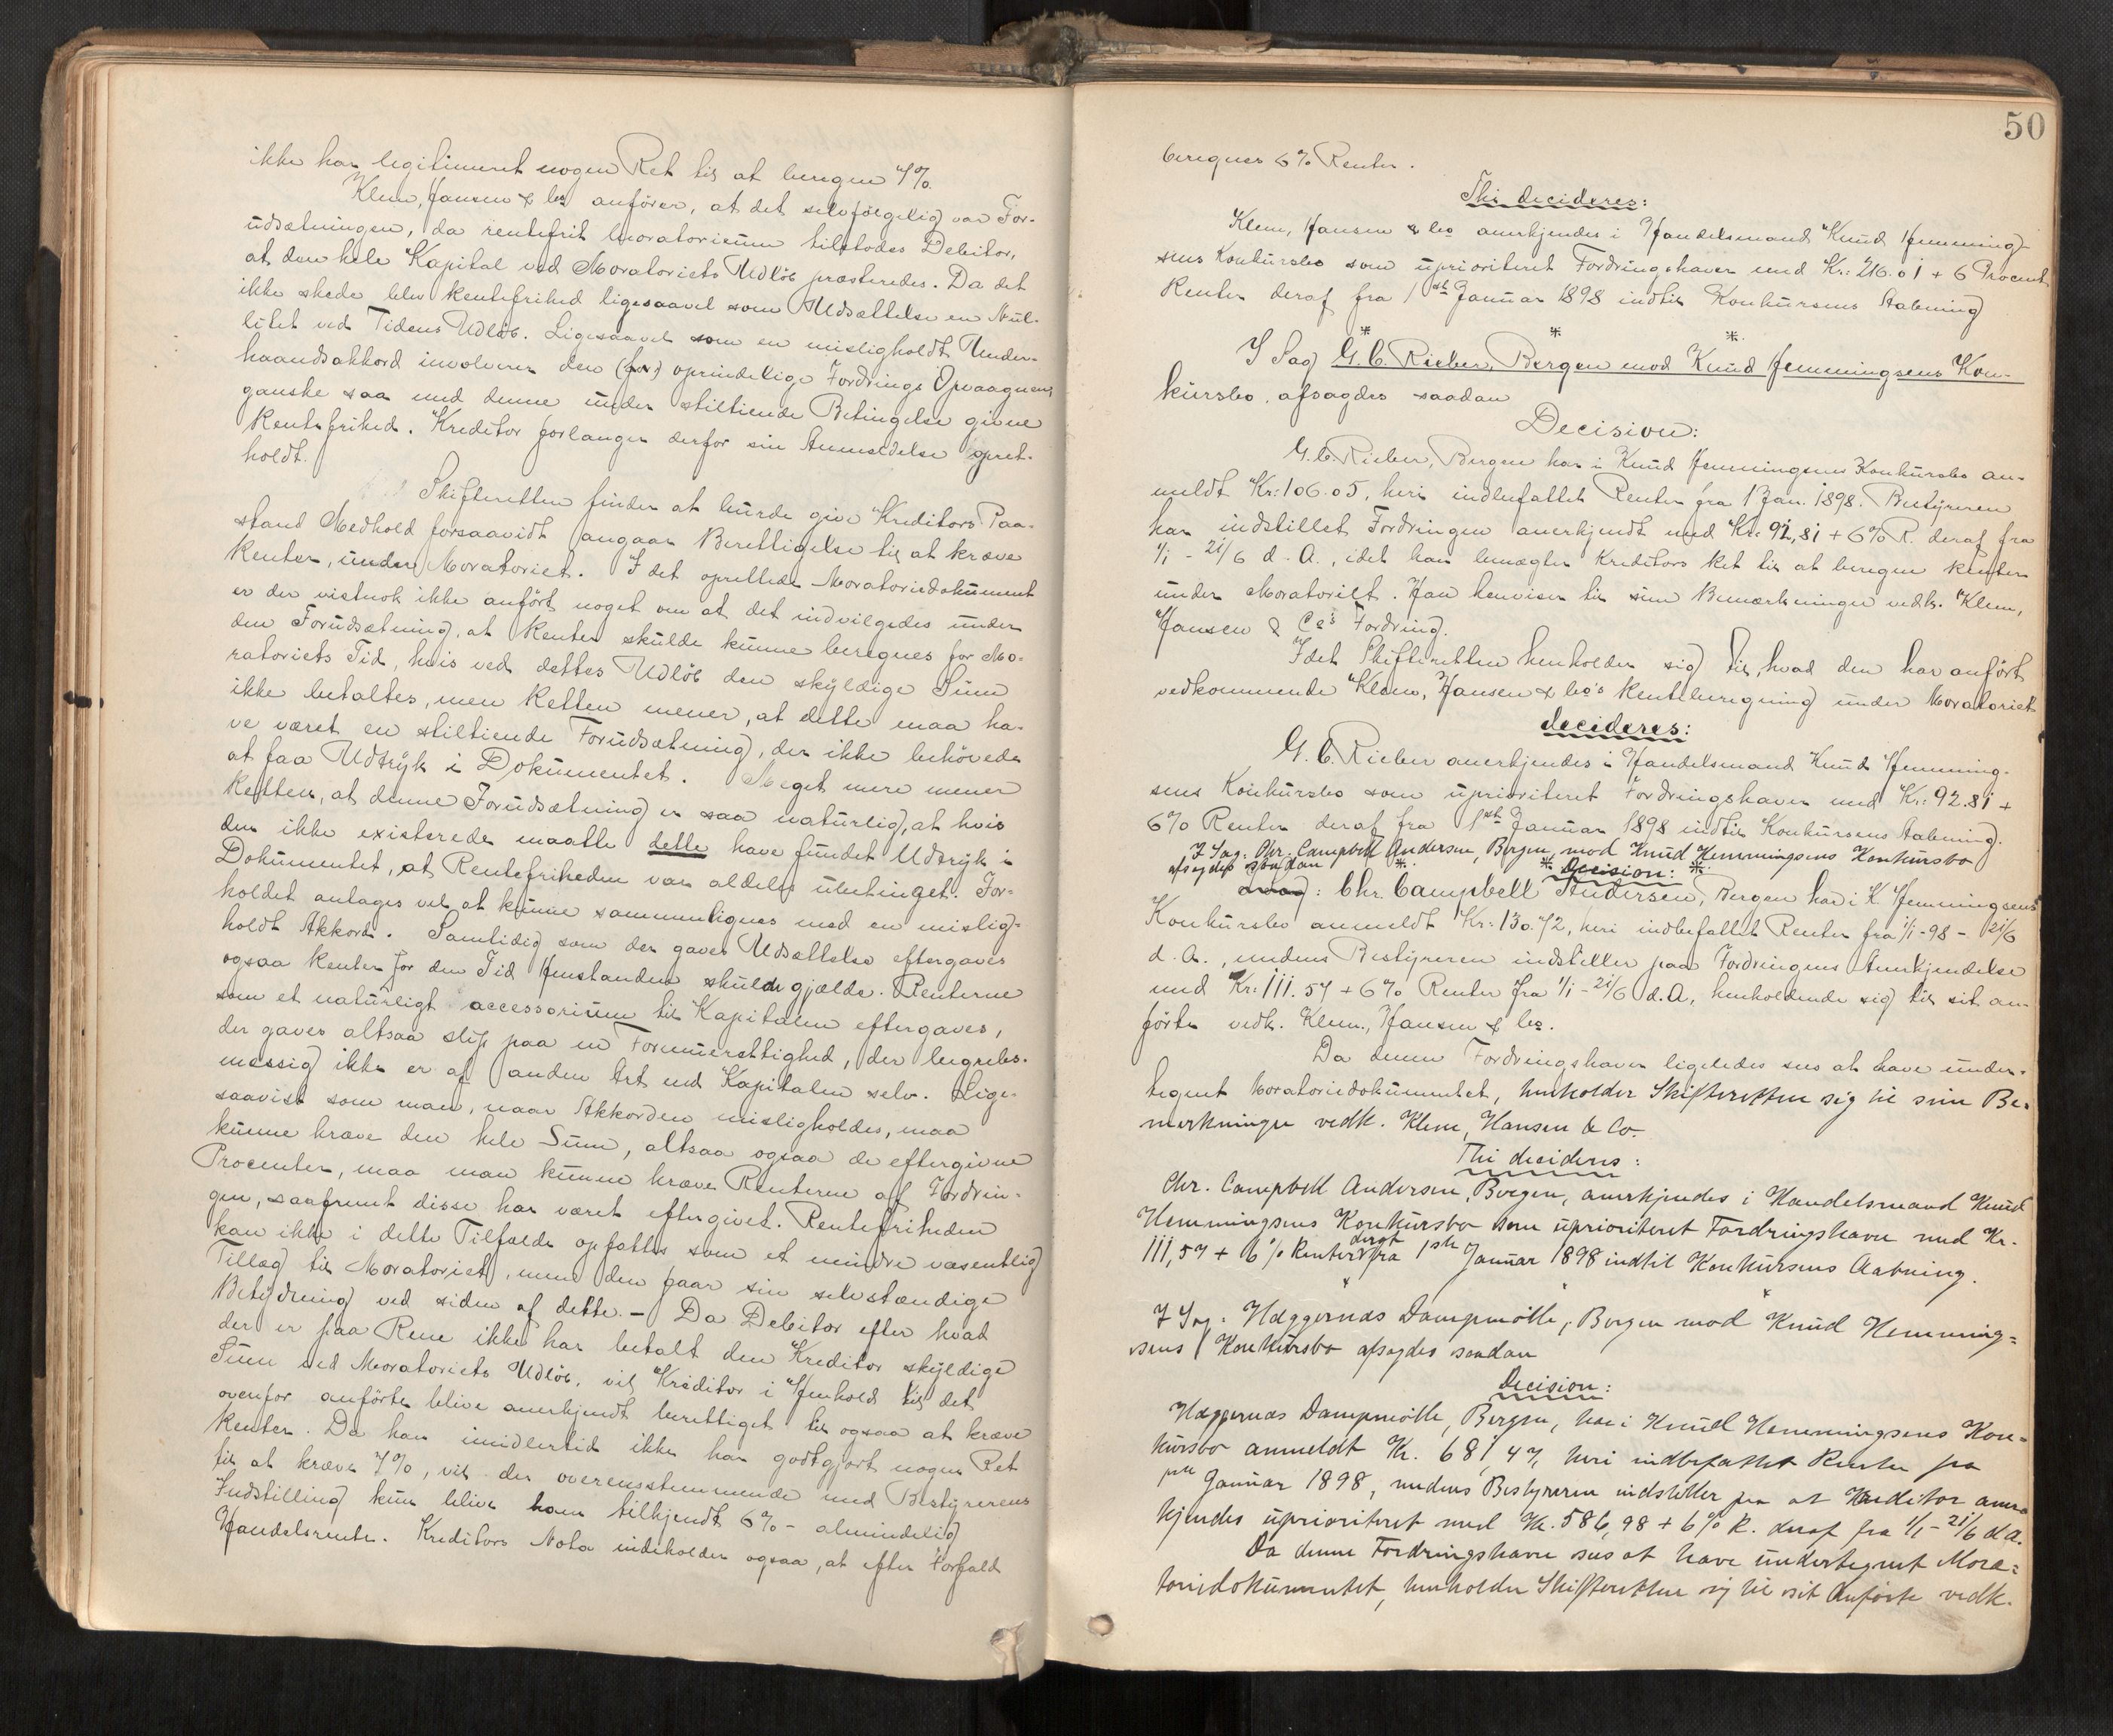 ikke har legitimeret nogen Ret til at beregne 7%.
Klem, Hansen & Co anfører, at det selvfølgelig var For-
udsætningen, da rentefrit Moratorium tilstodes Debitor,
at den hele Kapital ved Moratoriets Udløb præsteredes. Da det
ikke skede blev Rentefrihed ligesaavel som Udsættelse en Nul-
litet ved Tidens Udløb. Ligesaavel som en misligholdt Under-
haandsakkord involverer den (for) oprindelige Fordrings Opvaagnen,
ganske saa med denne under stiltiende Betingelse givne
Rentefrihed. Kreditor forlanger derfor sin Anmeldelse opret-
holdt.
Skifteretten finder at burde give Kreditors Paa-
stand Medhold forsaavidt angaar Berettigelse til at kræve
Renter, under Moratoriet. I det oprettede Moratoriedokument
er der vistnok ikke anført noget om at det indvilgedes under
den Forudsætning, at Renter skulde kunne beregnes for Mo-
ratoriets Tid, hvis ved dettes Udløb den skyldige Sum
ikke betaltes, men Retten mener, at dette maa ha-
ve været en stiltiende Forudsætning, der ikke behøvede
at faa Udtryk i Dokumentet. Meget mere mener
Retten, at denne Forudsætning er saa naturlig, at hvis
den ikke existerede maatte dette have fundet Udtryk i
Dokumentet, at Rentefriheden var aldeles ubetinget. For-
holdet antages vel at kunne sammenlignes med en mislig-
holdt Akkord. Samtidig som der gaves Udsættelse eftergaves
ogsaa Renter for den Tid Henstanden skulde gjælde. Renterne
som et naturligt accessorium til Kapitalen eftergaves,
der gaves altsaa slip paa en Formuerettighed, der begrebs-
mæssig ikke er af anden Art end Kapitalen selv. Lige-
saavist som man, naar Akkorden misligholdes, maa
kunne kræve den hele Sum, altsaa ogsaa de eftergivne
Procenter, maa man kunne kræve Renterne af Fordrin-
gen, saafremt disse har været eftergivet. Rentefriheden
kan ikke i dette Tilfælde opfattes som et mindre væsentlig
Tillæg til Moratoriet, men den faar sin selvstændige
Betydning ved siden af dette. – Da Debitor efter hvad
der er paa Rene ikke har betalt den Kreditor skyldige
Sum ved Moratoriets Udløb, vil Kreditor i Henhold til det
ovenfor anførte blive anerkjendt berettiget til ogsaa at kræve
Renter. Da han imidlertid ikke har godtgjort nogen Ret
til at kræve 7%, vil der overensstemmende med Bestyrerens
Indstilling kun blive ham tilkjendt 6% – almindelig
Handelsrente. Kreditors Nota indeholder ogsaa, at efter Forfald
50
beregnes 6% Renter.
Thi decideres:
Klem, Hansen & Co anerkjendes i Handelsmand Knud Hemming-
sens Konkursbo som uprioriteret Fordringshaver med Kr.: 216.01 + 6 Procent
Renter deraf fra 1ste Januar 1898 indtil Konkursens Aabning
* * *
I Sag G. C. Rieber, Bergen mod Knud Hemmingsens Kon-
kursbo, afsagdes saadan
Decision:
G. C. Rieber, Bergen har i Knud Hemmingsens Konkursbo an-
meldt Kr.: 106.05, heri indbefattet Renter fra 1 Jan. 1898. Bestyreren
har indstillet Fordringen anerkjendt med Kr. 92,81 + 6% R. deraf fra
1/1 – 21/6 d. A., idet han benægter Kreditors Ret til at beregne Renter
under Moratoriet. Han henviser til sine Bemærkninger vedk. Klem,
Hansen & Co's Fordring.
Idet Skifteretten henholder sig til, hvad den har anført
vedkommende Klem, Hansen & Co's Renteberegning under Moratoriet
decideres:
G. C. Rieber anerkjendes i Handelsmand Knud Hemming-
sens Konkursbo som uprioriteret Fordringshaver med Kr.: 92.81 +
6% Renter deraf fra 1ste Januar 1898 indtil Konkursens Aabning.
I Sag: Chr. Campbell Andersen, Bergen, mod Knud Hemmingsens Konkursbo
afsagdes saadan * * Decision: *
Chr. Campbell Andersen, Bergen har i K Hemmingsens
Konkursbo anmeldt Kr.: 130.72, heri indbefattet Renter fra 1/1 - 98 – 21/6
d. A., medens Bestyreren indstiller paa Fordringens Anerkjendelse
med Kr: 111.57 + 6% Renter fra 1/1 – 21/6 d. A, henholdende sig til sit an-
førte vedk. Klem, Hansen & Co.
Da denne Fordringshaver ligeledes sees at have under-
tegnet Moratoriedokumentet, henholder Skifteretten sig til sine Be-
merkninger vedk. Klem, Hansen & Co.
Thi decideres:
Chr. Campbell Andersen, Bergen, anerkjendes i Handelsmand Knud
Hemmingsens Konkursbo som uprioriteret Fordringshaver med Kr.
111,57 + 6% Renter deraf fra 1ste Januar 1898 indtil Konkursens Aabning.
* *
I Sag: Hæggernæs Dampmølle, Bergen mod Knud Hemming=
sens Konkursbo afsagdes saadan
Decision:
Hæggernæs Dampmølle, Bergen, har i Knud Hemmingsens Kon=
kursbo anmeldt Kr. 681,47, heri indbefattet Renter fra
1ste Januar 1898, medens Bestyreren indstiller paa at Kreditor aner=
kjendes uprioriteret med Kr. 586,98 + 6% R. deraf fra 1/1 – 21/6 d A.
Da denne Fordringshaver sees at have undertegnet Mora=
toriedokumentet, henholder Skifteretten sig til sit Anførte vedk.